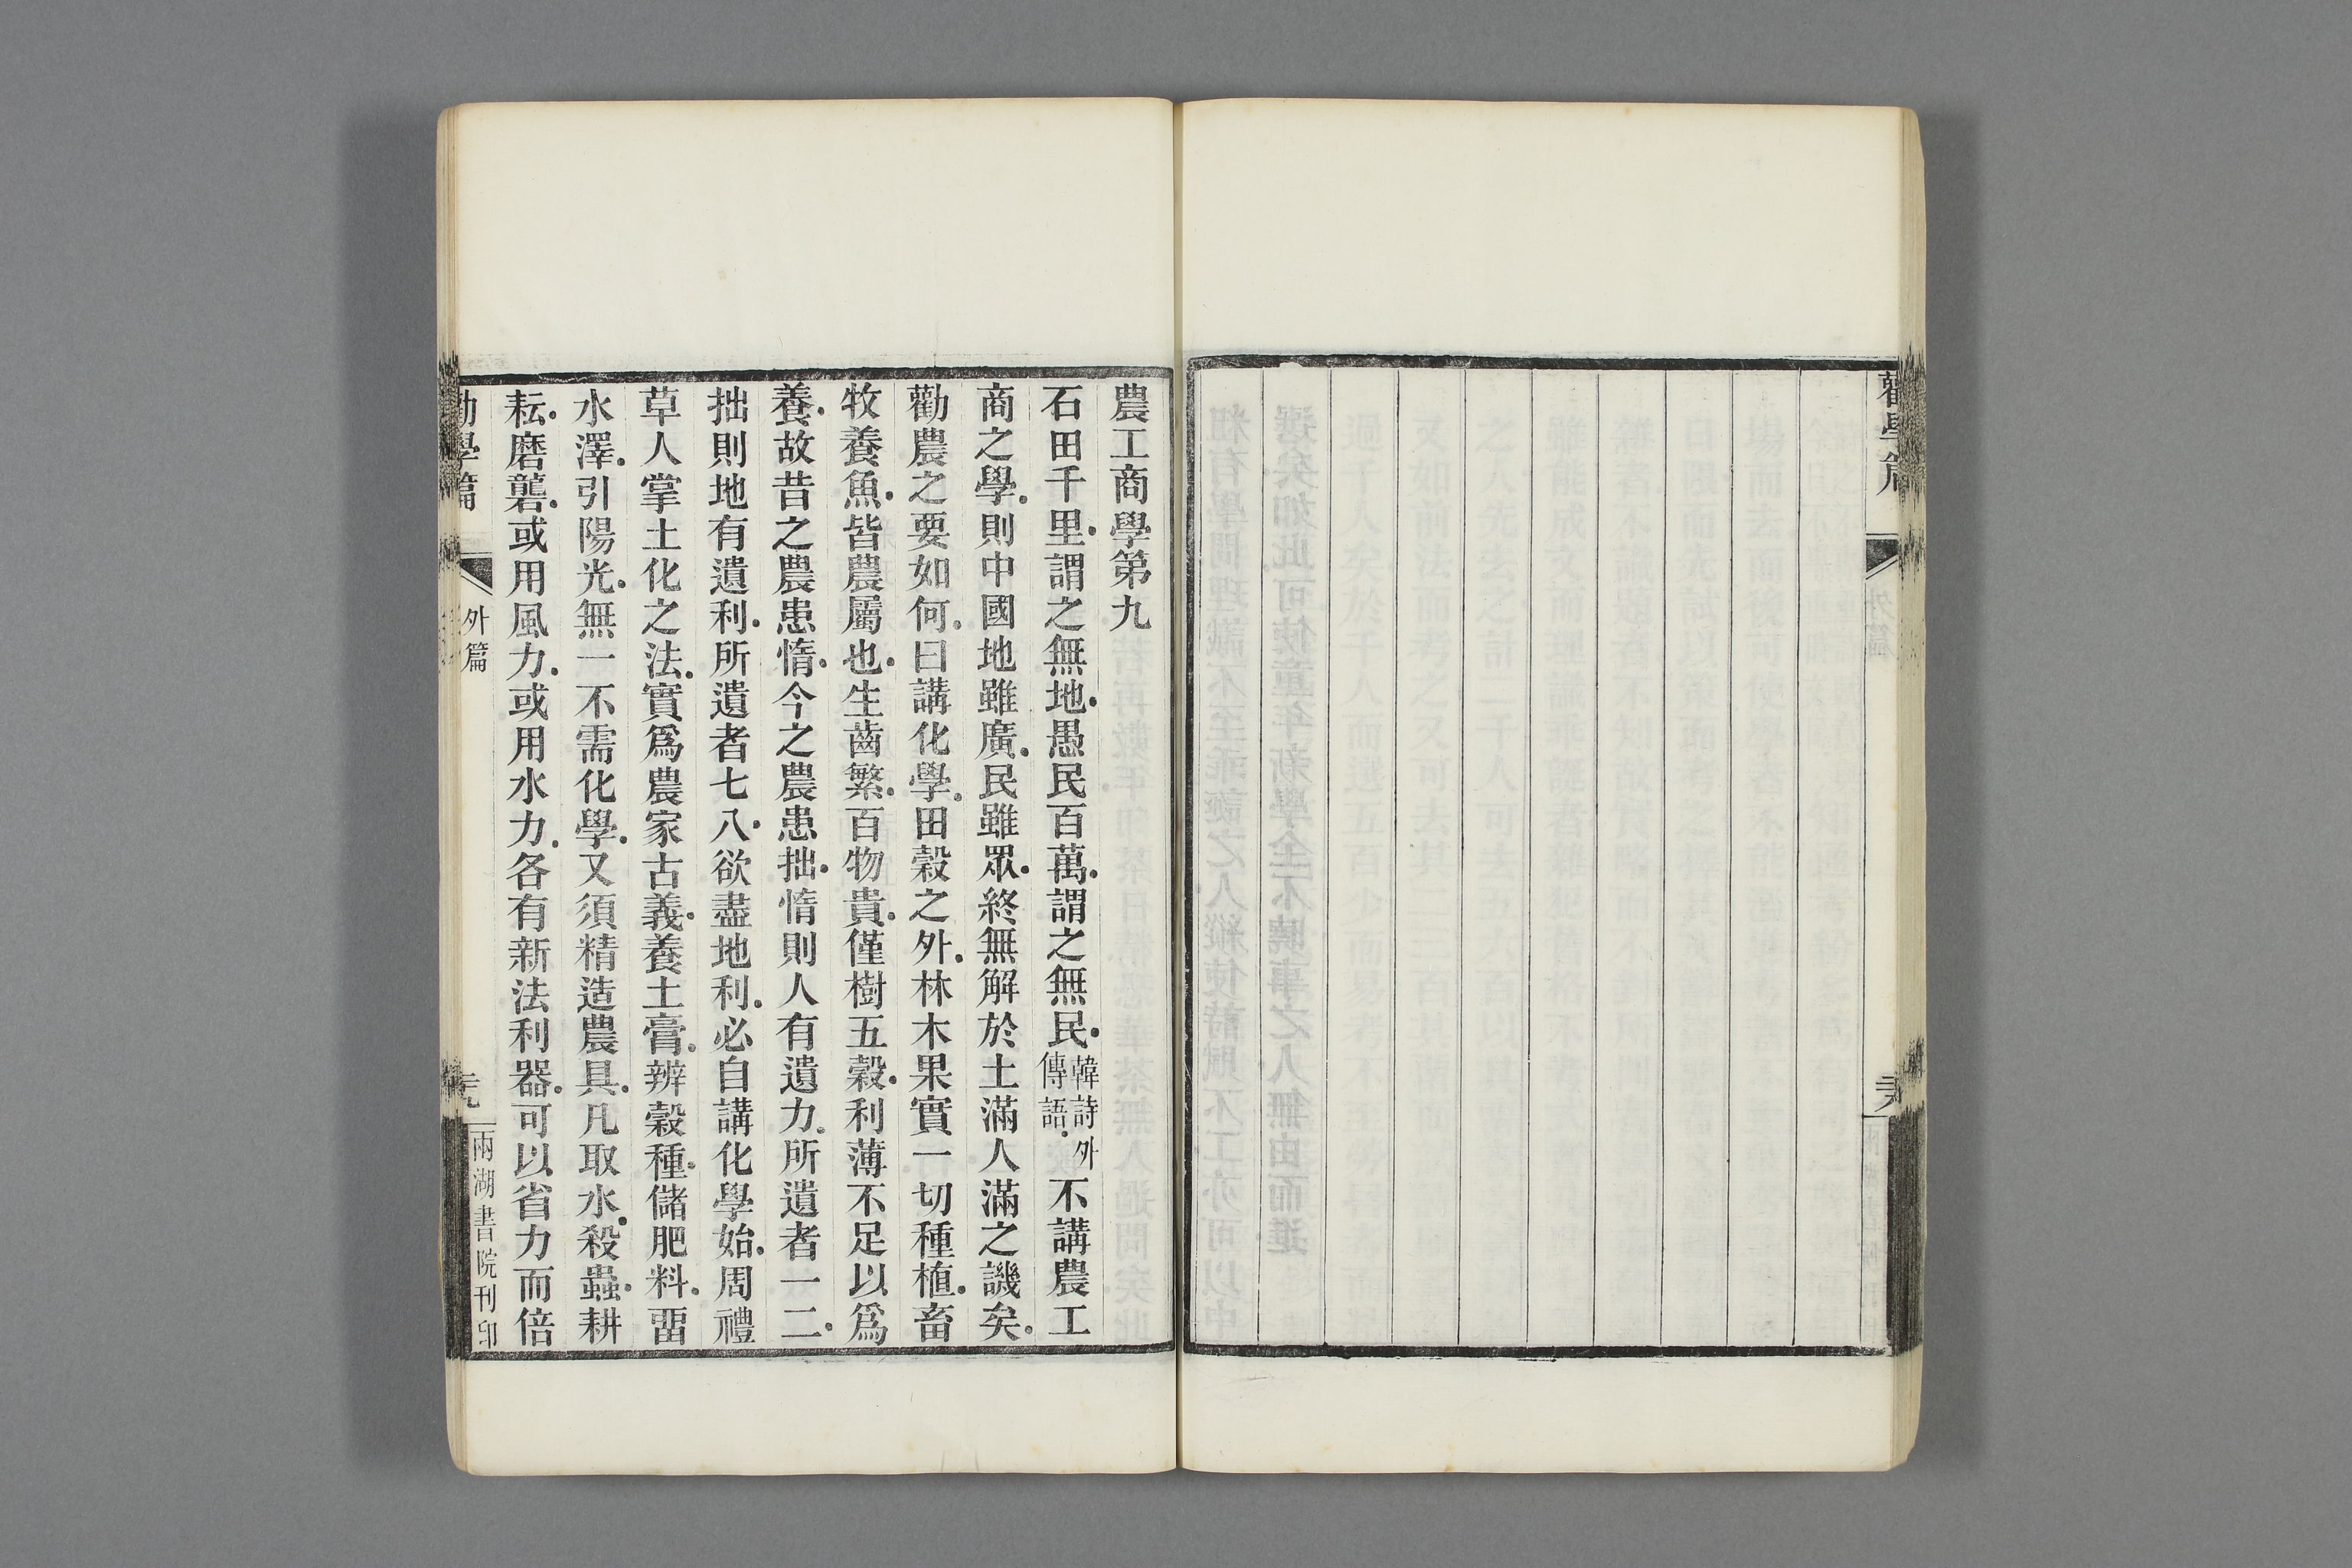 勸學篇
農工商學第九
石田千里.謂之無地.愚民百萬.謂之無民.韓詩外傳語.不講農工
商之學.則中國地雖廣.民雖眾.終無解於土滿人滿之譏矣.
勸農之要如何.曰講化學.田穀之外.林木果實一切種植.畜
牧養魚.皆農屬也.生齒繁.百物貴.僅樹五穀.利薄不足以爲
養.故昔之農患惰.今之農患拙.惰則人有遺力.所遺者一二.
拙則地有遺利.所遺者七八.欲盡地利.必自講化學始.周禮
草人掌土化之法.實爲農家古義.養土膏.辨穀種.儲肥料.畱
水澤.引陽光.無一不需化學.又須精造農具.凡取水.殺蟲.耕
耘.磨礱.或用風力.或用水力.各有新法利器.可以省力而倍
勸學篇
外篇
兩湖書院刊印